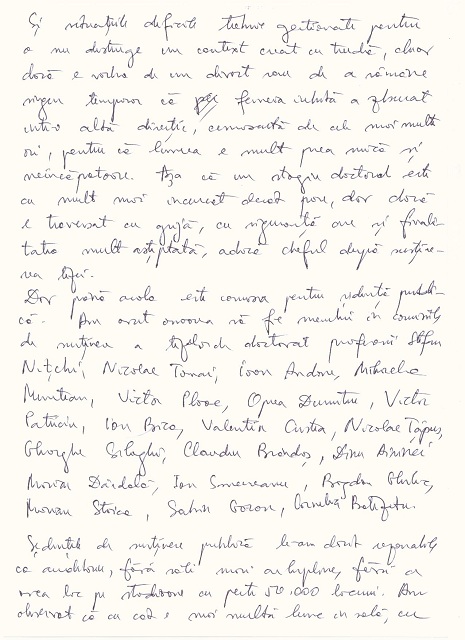 Și situațiile dificile trebuie gestionate pentru
a nu distruge un context creat cu trudă, chiar
dacă e vorba de un divorț sau de a rămâne
singur temporar că femeia iubită a zburat
într-o altă direcție, cunoscută de cele mai multe
ori, pentru că lumea e mult prea mică și
neîncăpătoare. Așa că un stagiu doctoral este
cu mult mai încurcat decât pare, dar dacă
e traversat cu grijă, cu siguranță are și finali-
tatea mult așteptată, adică cheful după susține-
rea tezei.
Dar până acolo este comisia pentru ședința publi-
că. Am avut onoarea să fie membri în comisiile
de susținere a tezelor de doctorat profesorii Ștefan
Nițchi, Nicolae Tomai, Ioan Andone, Mihaela
Muntean, Victor Ploae, Oprea Dumitru, Victor
Patriciu, Ion Bica, Valentin Cristea, Nicolae Țăpuș,
Gheorghe Silaghi, Claudiu Brândaș, Dinu Airinei
Marian Dârdală, Ion Smeureanu, Bogdan Ghilic,
Marian Stoica, Sabin Gorun, Corneliu
Ședințele de susținere publică le-am dorit
ca auditoriu, fără săli mari arhipline, fără a
avea loc pe stadioane cu peste 50.000 locuri. Am
observat că cu cât e mai multă lume în sală, cu